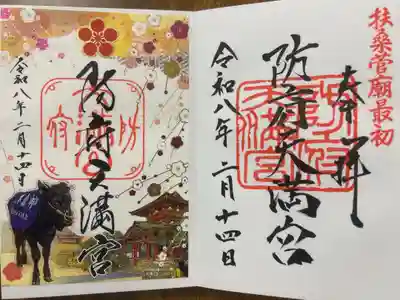 扶桑菅廟最初
奉拝
防府天満宮
令和八年二月十四日
防府天満宮
令和八年二月十四日
防
府